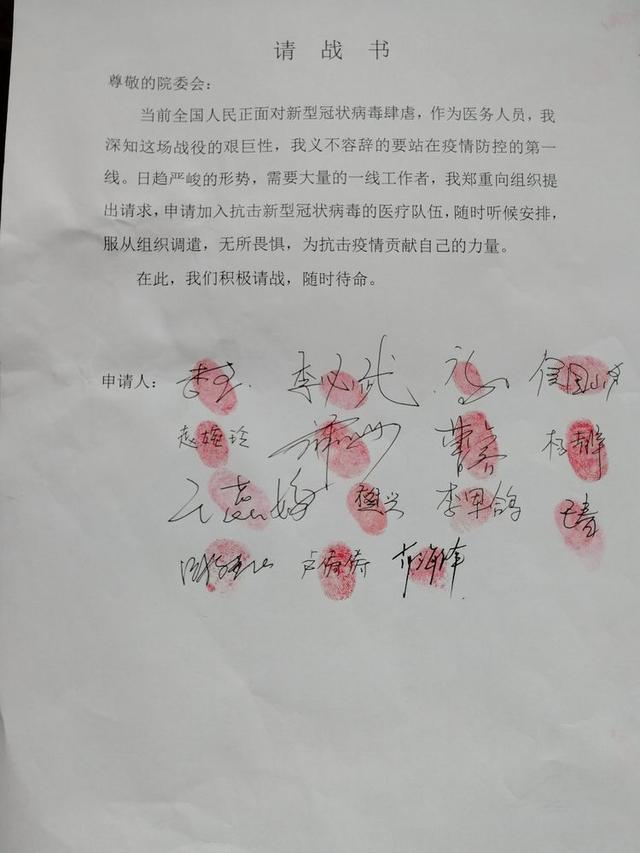 请战书
尊敬的院委会：
当前全国人民正面对新型冠状病毒肆虐，作为医务人员，我
深知这场战役的艰巨性，我义不容辞的要站在疫情防控的第一
线。日趋严峻的形势，需要大量的一线工作者，我郑重向组织提
出请求，申请加入抗击新型冠状病毒的医疗队伍，随时听候安排，
服从组织调遣，无所畏惧，为抗击疫情贡献自己的力量。
在此，我们积极请战，随时待命。
申请人：